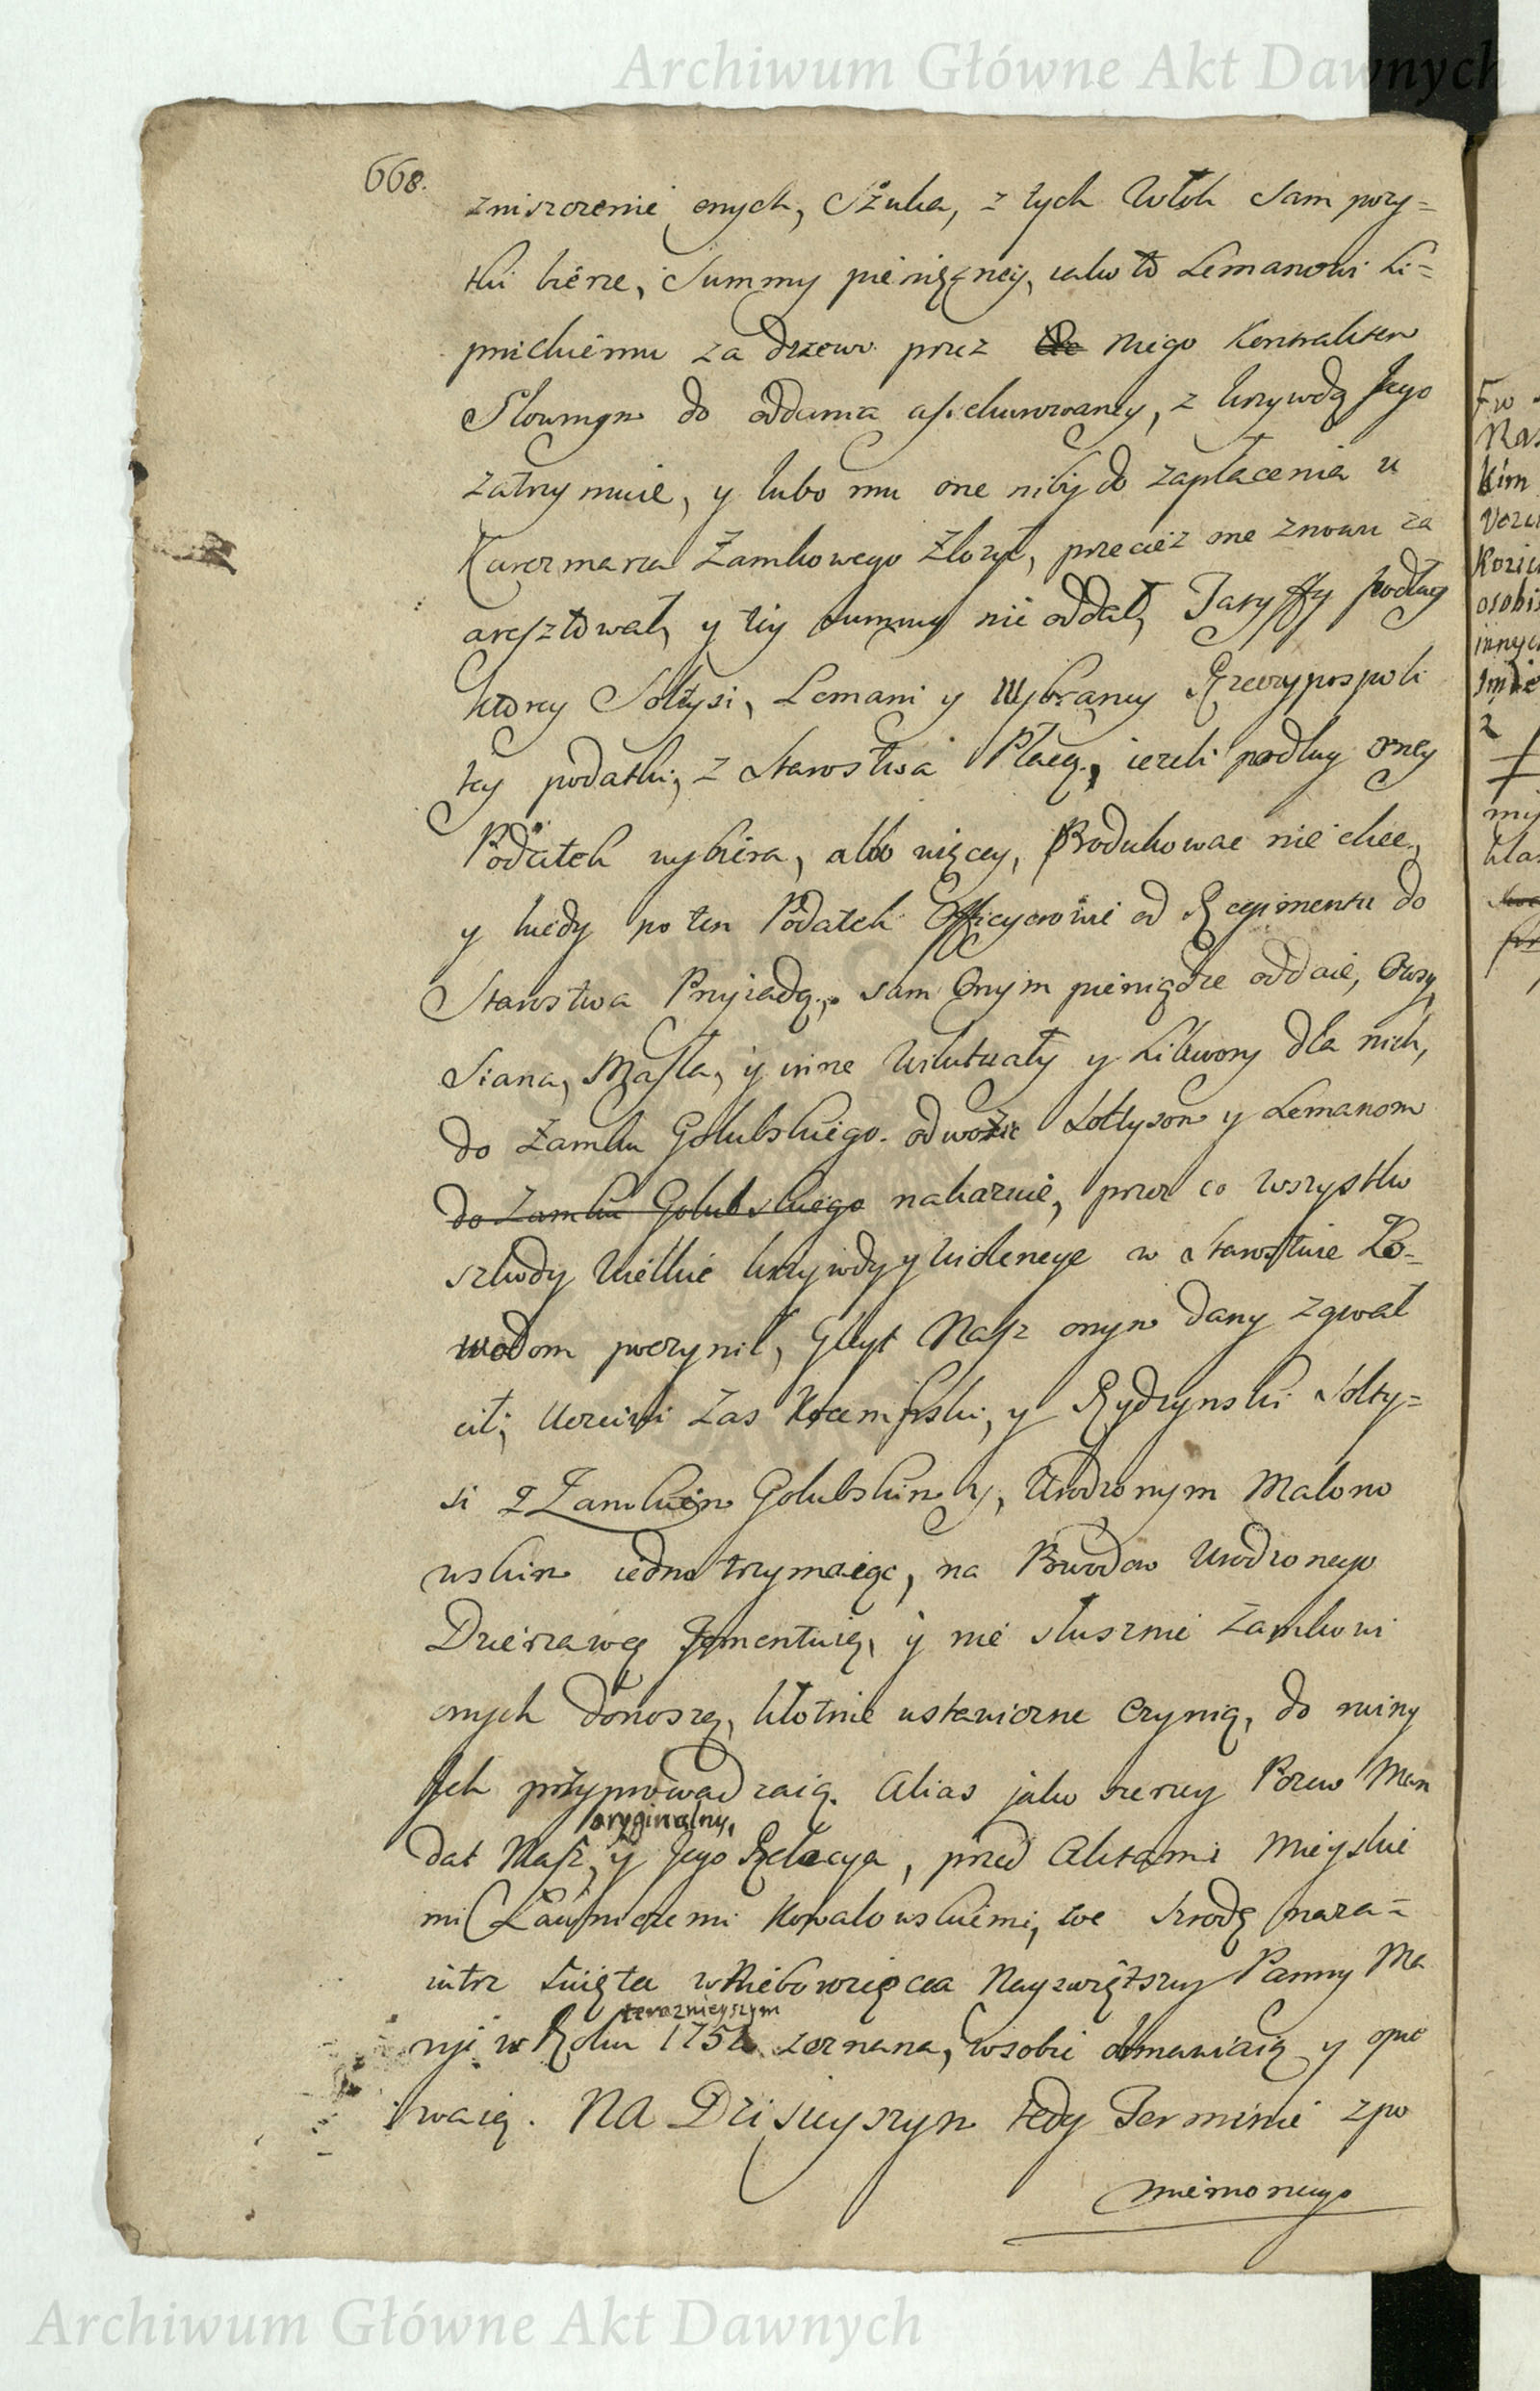 Archiwum Główne Akt Dawnych
668.
zniszczenie onych, Szuka, z tych Włok sam pozy=
tki bierze, Summy pieniężney, iako to Lemanowi Li=
pnickiemu za drzewo przez niego Kontraktem
Słownym do oddania assekurowaney, z krzywdą Jego
zatrzymuie, y lubo mu one niby do zapłacenia u
Karczmarza Zamkowego Złozył, przecież one znowu za
aresztował, y tey summy nie oddał, Taryffy podług
ktorey Sołtysi, Lemani y Wybrancy Rzeczypospoli
tey podatki, z Starostwa Płacą, iezeli podług oney
Podatek wybiera, albo więcey, Produkowac nie chce,
y kiedy po ten Podatek Officyerowie od Regimentu do
Starostwa Przyiadą, sam Onym pieniądze oddaie, Owsy,
Siana, Masła, y inne Wiktuały y Likwory dla nich,
do Zamku Golubskiego odwozic Sołtysom y Lemanom
do Zamku Golubskiego nakazuie, przez co wszystko
szkody wielkie krzywdy y wiolencye w Starostwie Po=
wodom poczynił, Gleyt Nasz onym dany zgwał
cił, Uczciwi Zas y Rydzynski Sołty=
si z Zamkiem Golubskim y, Urodzonym Malono
wskim iedno trzymaiąc, na Powodow Urodzonego
Dzierzawcę Fomentuią, y nie słusznie Zamkowi
onych donoszą, kłotnie ustawiczne Czynią, do ruiny
Ich przyprowadzaią. Alias jako szerzey Pozew Man
oryginalny,
dat Nasz, y Jego Relacya, przed Aktami Mieyskie
mi Ławniczemi Kowalowskiemi, we Srodę naza=
iutrz Swięta wNiebowzięcia Nayswiętszey Panny Ma
teraznieyszym
ryi w Roku 1752 zeznana, wsobie obmawiaią y opie
waią. NA Dzisieyszym tedy Terminie zpo
mienionego
Archiwum Główne Akt Dawnych